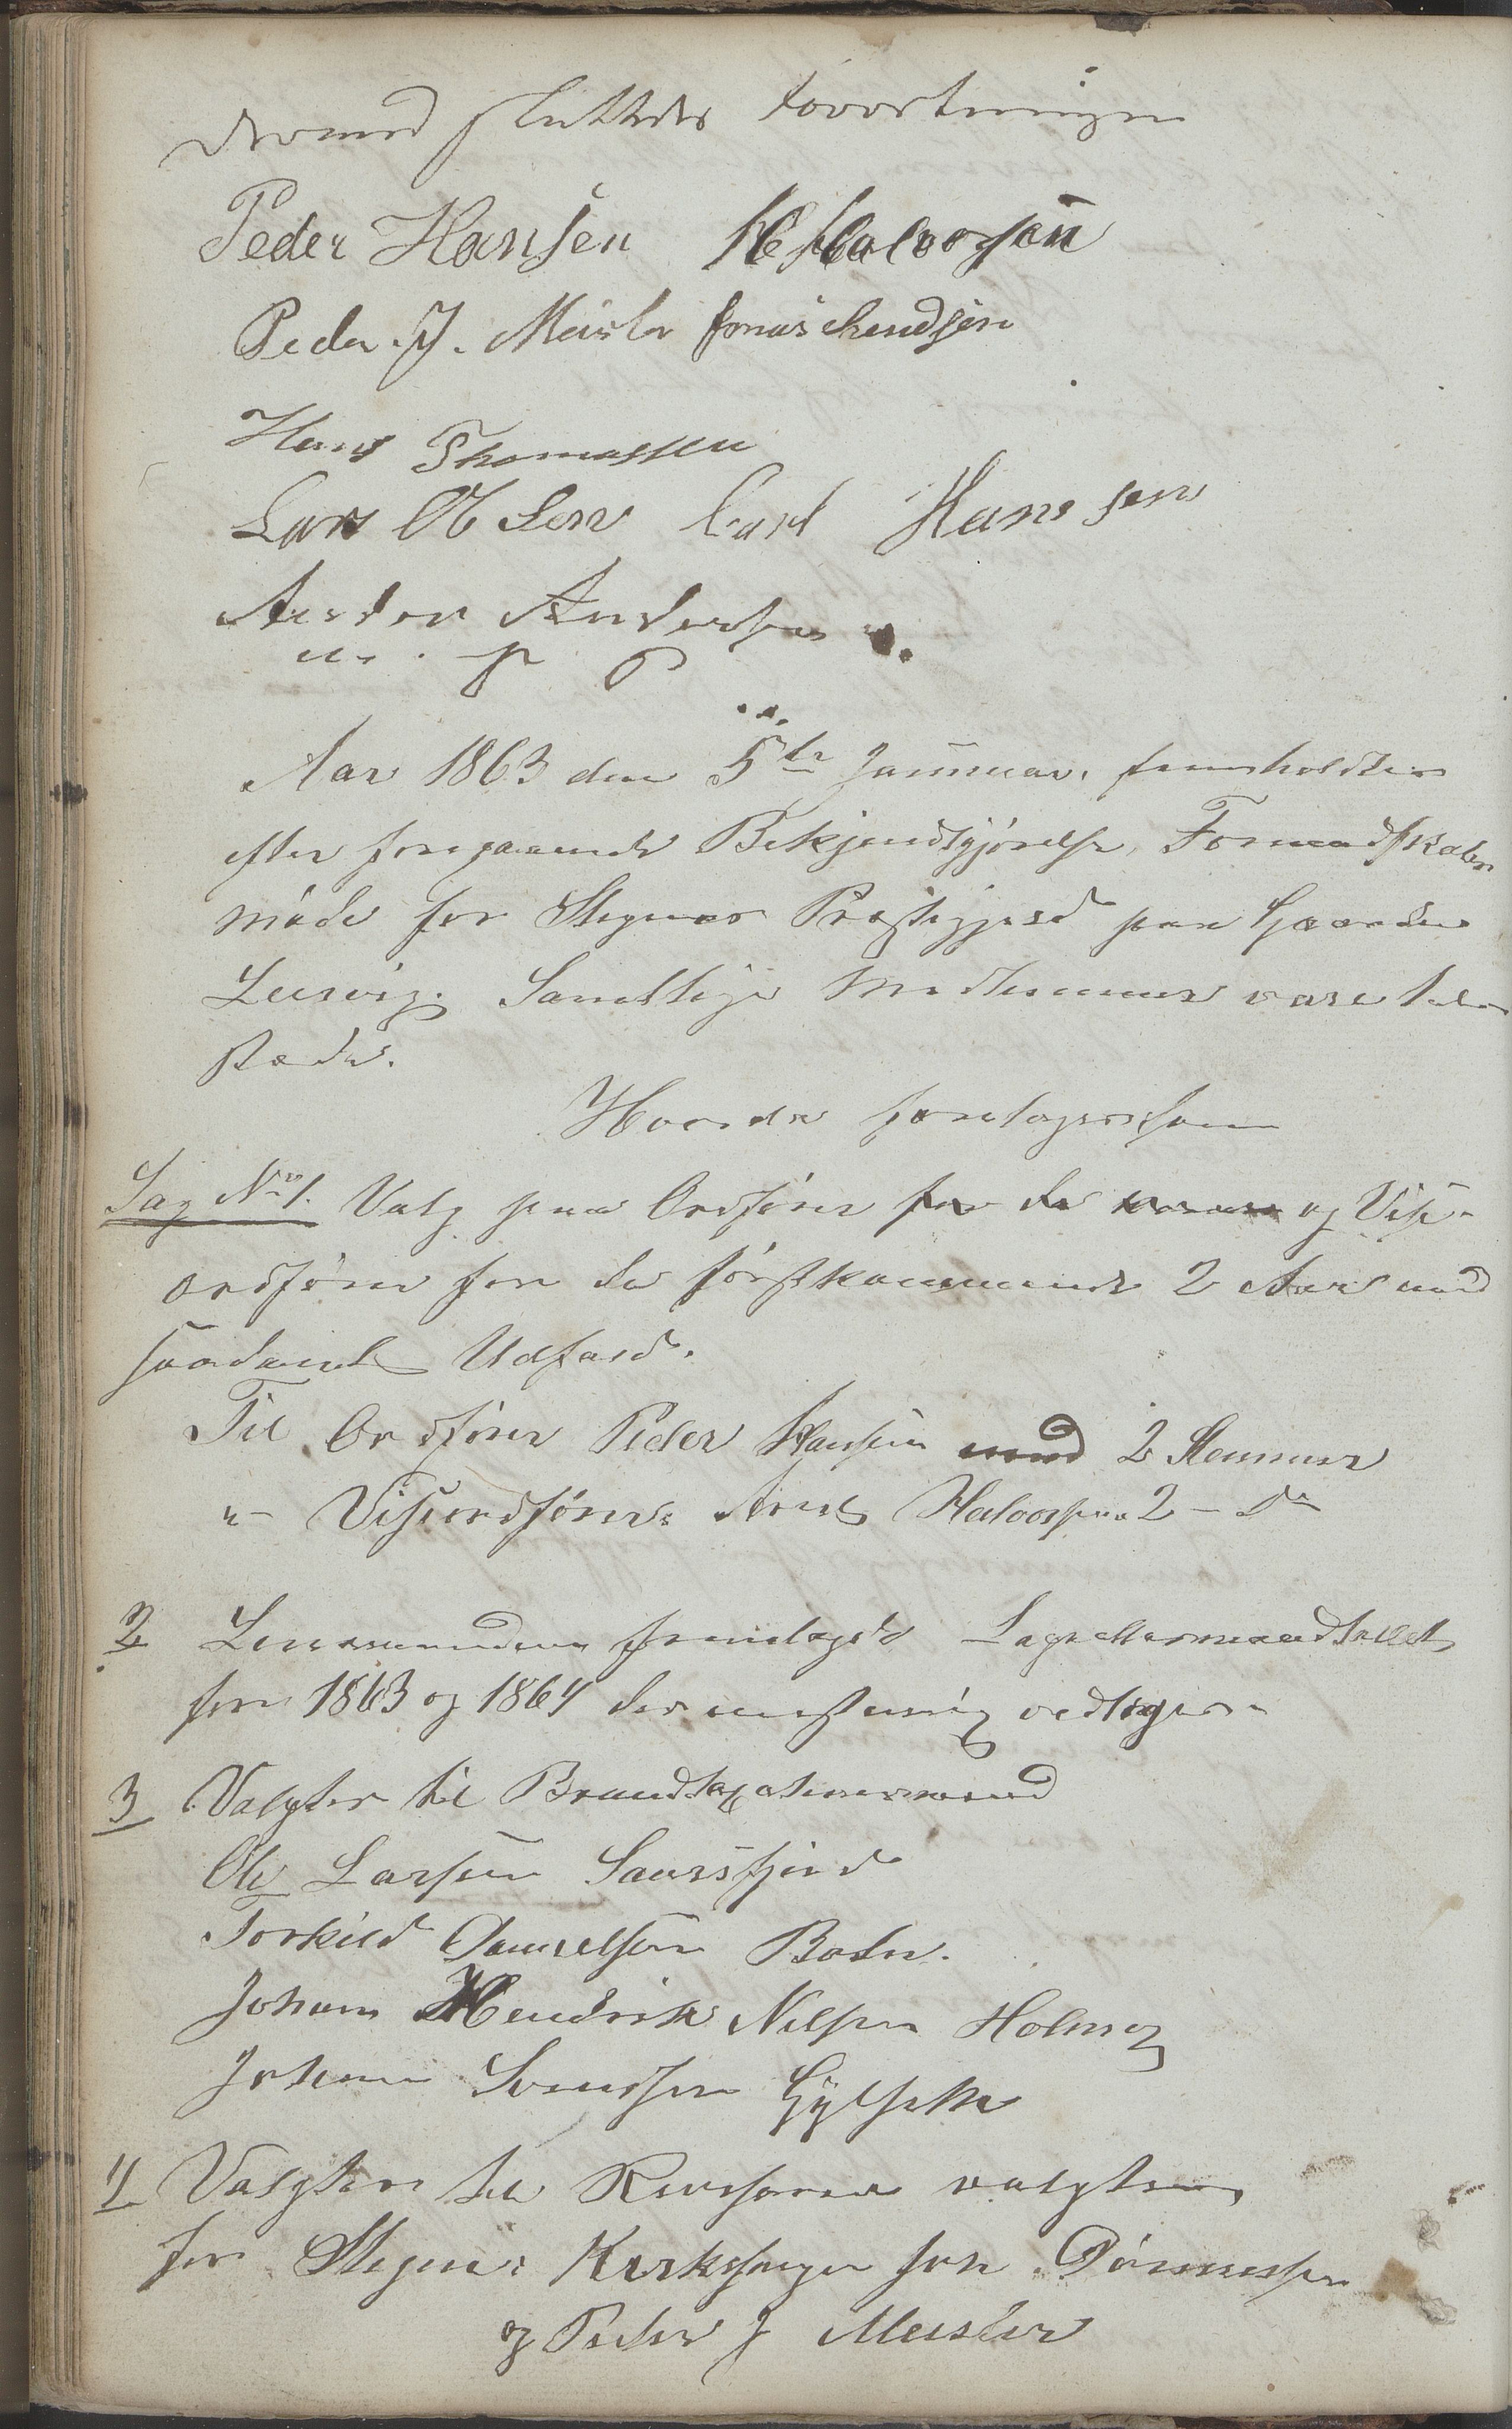 dermed sluttedes Forretningen
Peder Hansen A Halvorsen
Peder J. Meister Jonas Svendsen
Hans Thomassen
Lars Olsen Carl Hanssen
Anders Andersen
m. p. P
Aar 1863 den 5te Januar, fremholdtes
efter foregaaende Bekjendtgjørelse, Formandskabs
møde for Stegens Præstegjeld paa Gaarden
Leervig. Samtlige Medlemmer vare tele
stæde.
Hvorda foretoges som
Sag No 1. Valg paa Ordfører for de og Vise-
ordfører for de førstkommende 2 Aar med
saadant Udfald.
Til Ordfører Peder Hansen med 2 Stemmer
"- Viseordfører Arnt Halvorsen 2 - Do
2 Lensmanden fremlagde Lagrettesmandtallet
for 1863 og 1864 der vedtages
3 Valgtes til Brandtaxationsmænd
Ole Larsen Saursfjord
Torkild Danielsen Botn.
Johan Hendrik Nilsen Holmog
Johan Svendsen Gylseth
4 Valgtes til Revisorer valgtes
for Stegens Kirkesanger Joh. Dønnessen
og Peder J Meister